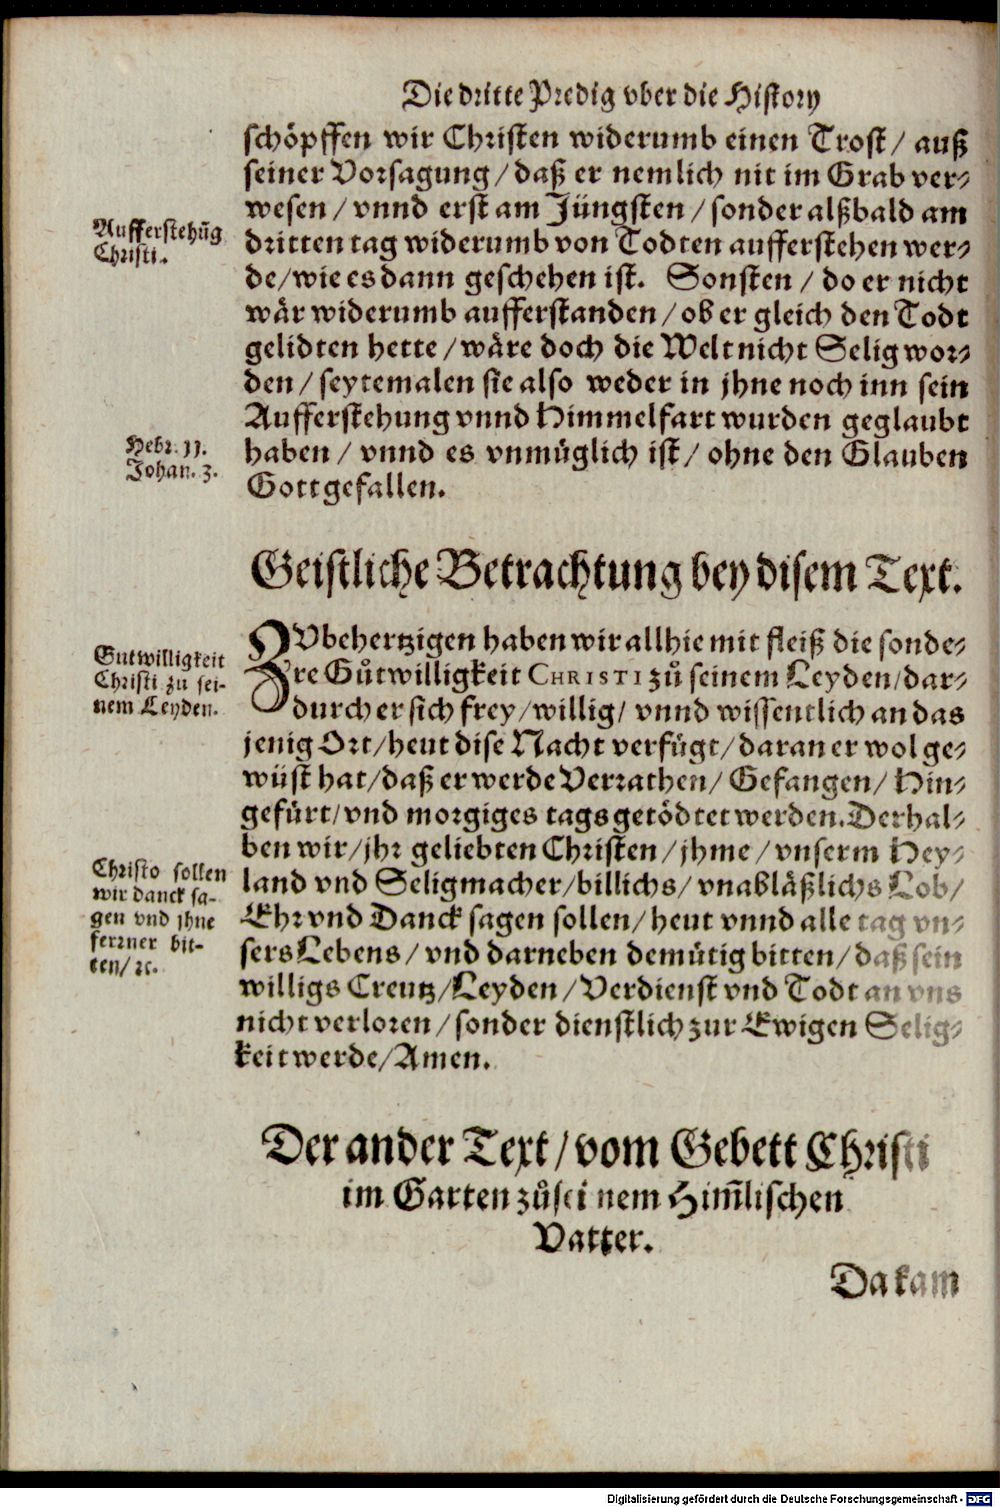 Die dritte Predig vber die History
schöpffen wir Christen widerumb einen Trost / auß
seiner Vorsagung / daß er nemlich nit im Grab ver-
wesen / vnnd erst am Jüngsten / sonder alßbald am
Aufferstehũg
Christi.
dritten tag widerumb von Todten aufferstehen wer-
de / wie es dann geschehen ist. Sonsten / do er nicht
wär widerumb aufferstanden / ob er gleich den Todt
gelidten hette / wäre doch die Welt nicht Selig wor-
den / seytemalen sie also weder in jhne noch inn sein
Aufferstehung vnnd Himmelfart wurden geglaubt
Hebr. 11.
Johan. 3.
haben / vnnd es vnmüglich ist / ohne den Glauben
Gott gefallen.
Geistliche Betrachtung bey disem Text.
Gutwilligkeit
Christi zu sei-
nem Leyden.
ZVbehertzigen haben wir allhie mit fleiß die sonde-
re Gůtwilligkeit CHRISTI zů seinem Leyden / dar-
durch er sich frey / willig / vnnd wissentlich an das
jenig Ort / heut dise Nacht verfügt / daran er wol ge-
wüst hat / daß er werde Verrathen / Gefangen / Hin-
gefürt / vnd morgiges tags getödtet werden. Derhal-
ben wir / jhr geliebten Christen / jhme / vnserm Hey-
Christo sollen
wir danck sa-
gen vnd jhne
ferrner bit-
ten / ꝛc.
land vnd Seligmacher / billichs / vnabläßlichs Lob /
Ehr vnd Danck sagen sollen / heut vnnd alle tag vn-
sers Lebens / vnd darneben demütig bitten / daß sein
willigs Creutz / Leyden / Verdienst vnd Todt an vns
nicht verloren / sonder dienstlich zur Ewigen Selig-
keit werde / Amen.
Der ander Text / vom Gebett Christi
im Garten zů sei nem Him̃lischen
Vatter.
Da kam
Digitalisierung gefördert durch die Deutsche Forschungsgemeinschaft - DFG